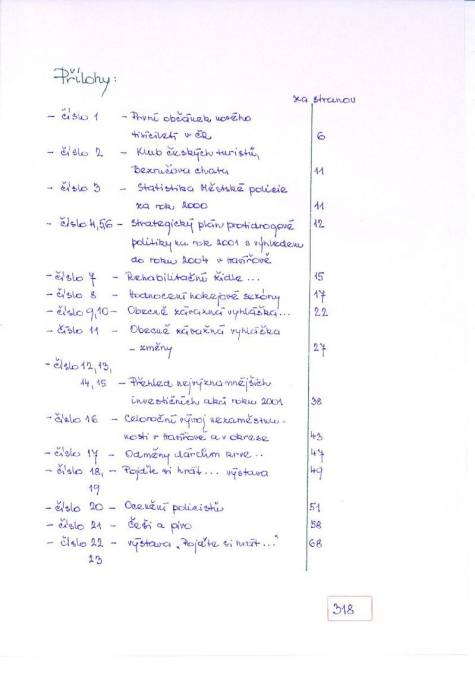 Přílohy:
za stranou
- číslo 1 - První občánek nového
tisíciletí v ČR 6
- číslo 2 - Klub českých turistů,
Bezručova chata 11
- číslo 3 - Statistika Městské policie
za rok 2000 11
- číslo 4,5,6 - Strategický plán protidrogové 12
politiky na rok 2001 s výhledem
do roku 2004 v Havířově
- číslo 7 - Rehabilitační židle... 15
- číslo 8 - Hodnocení hokejové sezóny 17
- číslo 9,10 - Obecně závazná vyhláška... 22
- číslo 11 - Obecně závazná vyhláška
- změny 27
- číslo 12,13,
14, 15 - Přehled nejvýznamnějších
investičních akcí roku 2001 38
- číslo 16 - Celoroční vývoj nezaměstna-
nosti v Havířově a v okrese 43
- číslo 17 - Odměny dárcům krve.. 47
- číslo 18, - Pojďte si hrát... výstava 49
19
- číslo 20 - Ocenění policistů 51
- číslo 21 - Češi a pivo 58
- číslo 22 - výstava „Pojďte si hrát..." 68
23
318